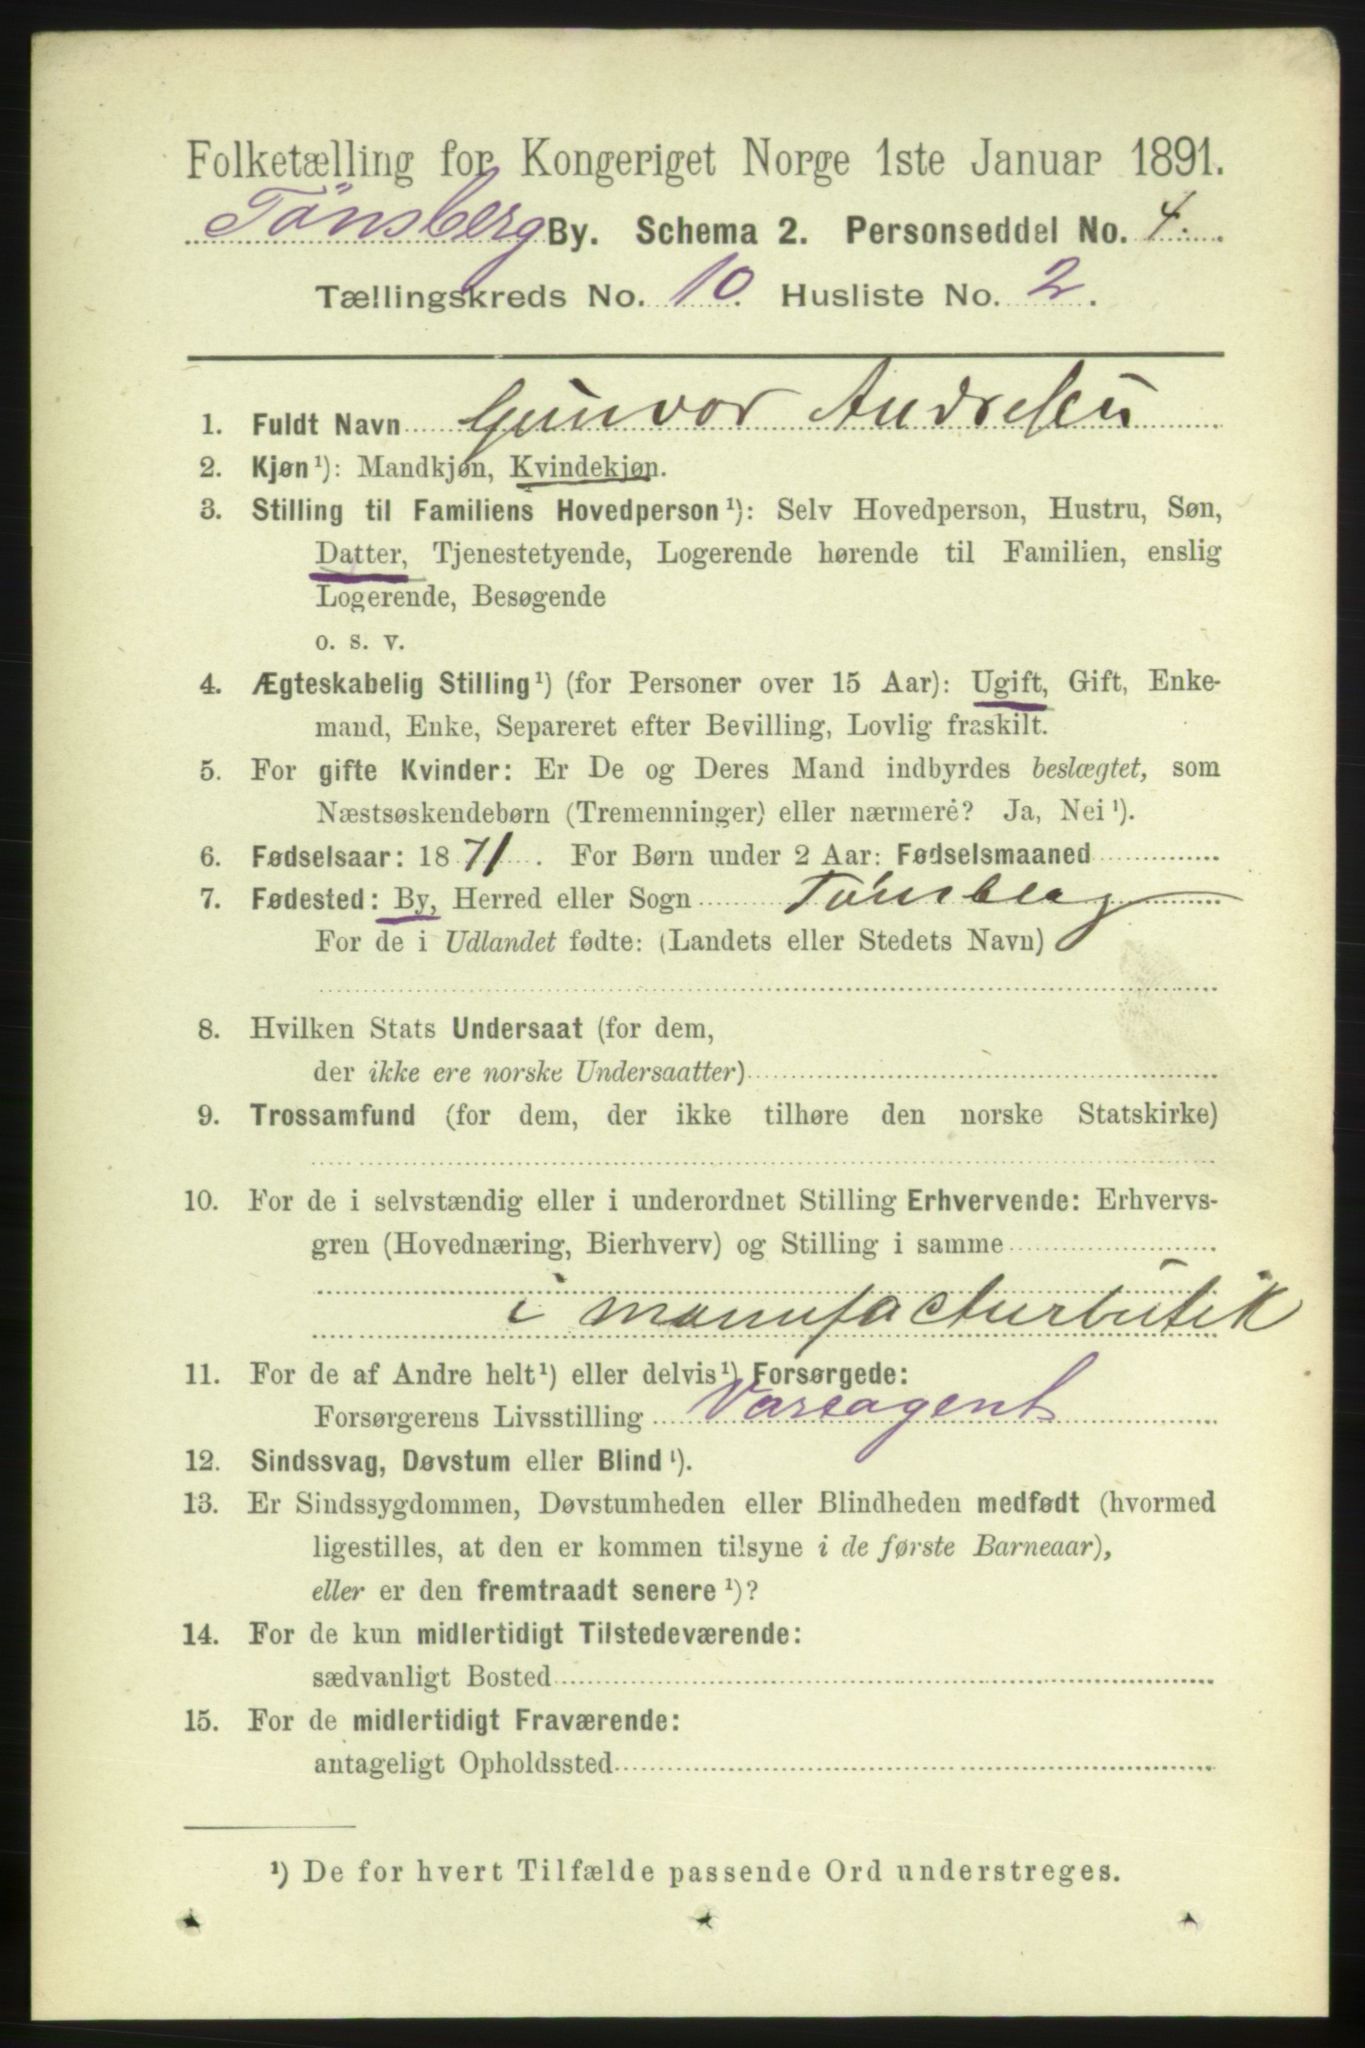 Folketælling for Kongeriget Norge 1ste Januar 1891.
Tönsberg By. Schema 2. Personseddel No. 4.
Tællingskreds No. 10. Husliste No. 2.
1. Fuldt Navn Gunvor Andresen
2. Kjøn¹): Mandkjøn, Kvindekjøn.
3. Stilling til Familiens Hovedperson¹): Selv Hovedperson, Hustru, Søn,
Datter, Tjenestetyende, Logerende hørende til Familien, enslig
Logerende, Besøgende
o. s. v.
4. Ægteskabelig Stilling¹) (for Personer over 15 Aar): Ugift, Gift, Enke-
mand, Enke, Separeret efter Bevilling, Lovlig fraskilt.
5. For gifte Kvinder: Er De og Deres Mand indbyrdes beslægtet, som
Næstsøskendebørn (Tremenninger) eller nærmere? Ja, Nei¹).
6. Fødselsaar: 1871. For Børn under 2 Aar: Fødselsmaaned
7. Fødested: By, Herred eller Sogn Tönsberg
For de i Udlandet fødte: (Landets eller Stedets Navn)
8. Hvilken Stats Undersaat (for dem,
der ikke ere norske Undersaatter)
9. Trossamfund (for dem, der ikke tilhøre den norske Statskirke)
10. For de i selvstændig eller i underordnet Stilling Erhvervende: Erhvervs-
gren (Hovednæring, Bierhverv) og Stilling i samme
i manufacturbutik
11. For de af Andre helt¹) eller delvis¹) Forsørgede:
Forsørgerens Livsstilling Vareagent
12. Sindssvag, Døvstum eller Blind¹).
13. Er Sindssygdommen, Døvstumheden eller Blindheden medfødt (hvormed
ligestilles, at den er kommen tilsyne i de første Barneaar),
eller er den fremtraadt senere¹)?
14. For de kun midlertidigt Tilstedeværende:
sædvanligt Bosted
15. For de midlertidigt Fraværende:
antageligt Opholdssted
¹) De for hvert Tilfælde passende Ord understreges.